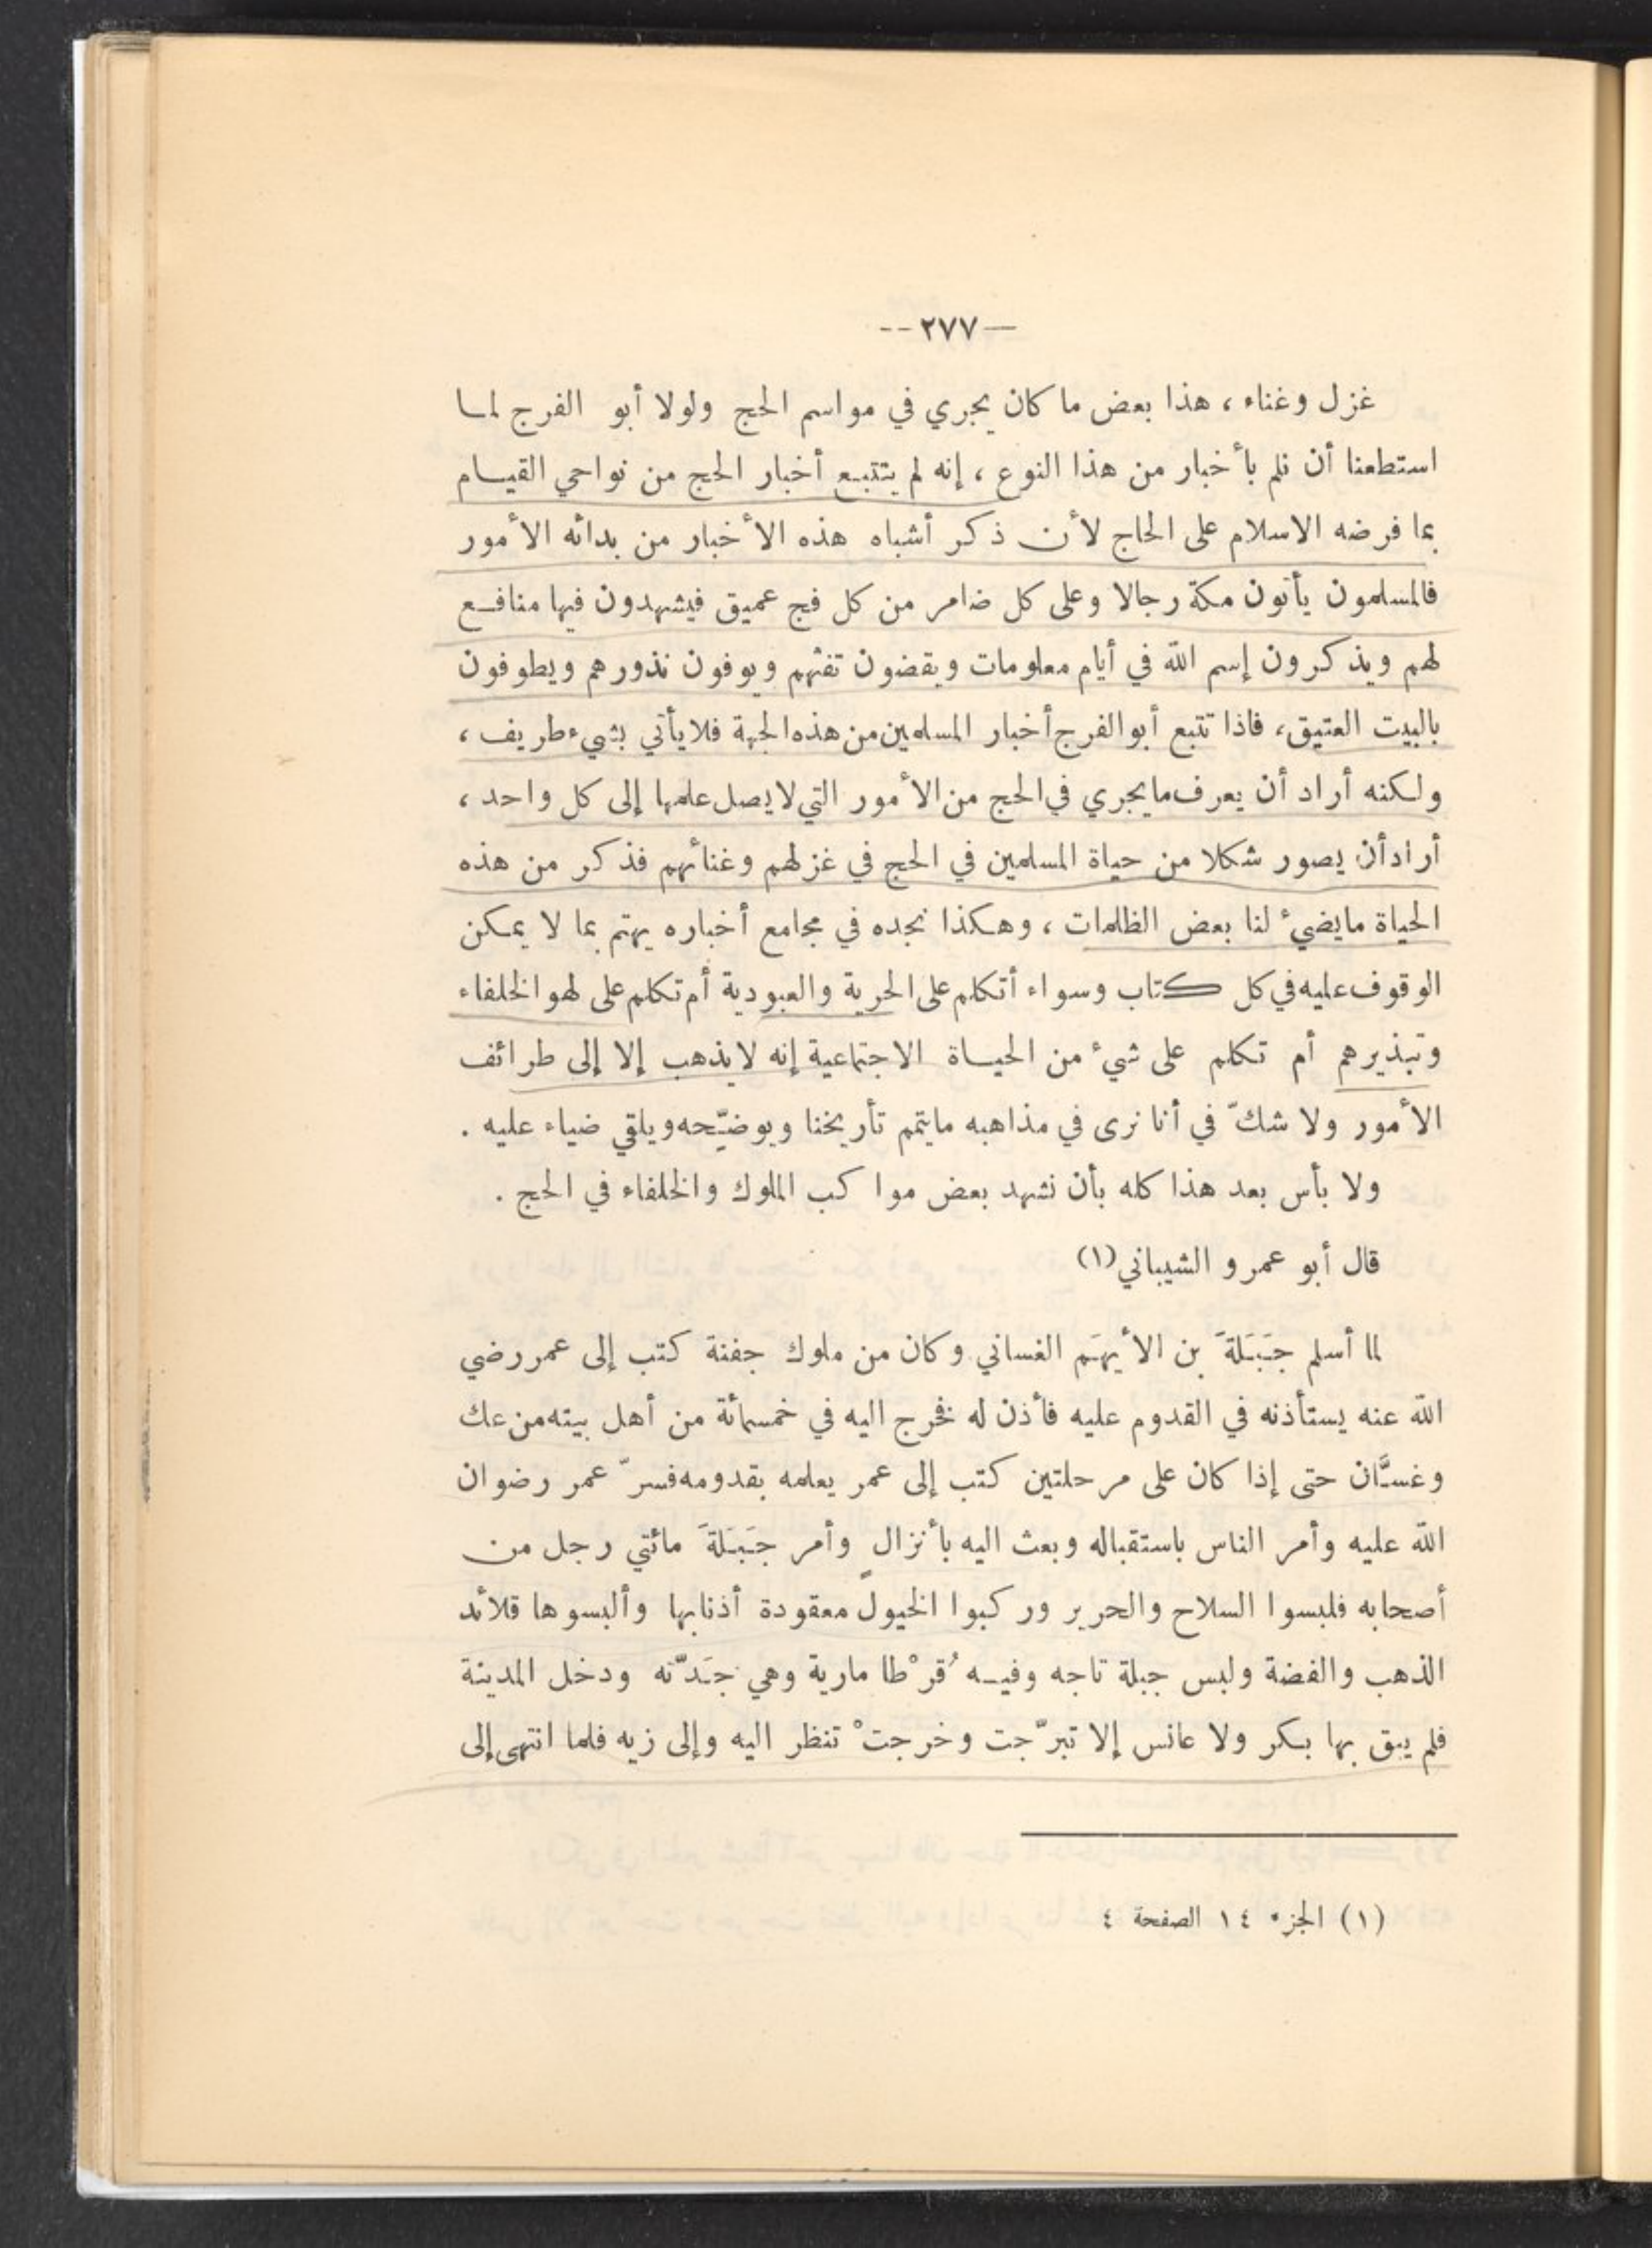 —٢٧٧--
غزل وغناء ، هذا بعض ما كان يجري في مواسم الحج ولولا أبو الفرج لما
استطعنا أن نلم بأخبار من هذا النوع ، إنه لم يتتبع أخبار الحج من نواحي القيـام
بما فرضه الاسلام على الحاج لأن ذكر أشباه هذه الأخبار من بدائه الأمور
فالمسلمون يأتون مكة رجالا وعلى كل ضامر من كل فج عميق فيشهدون فيها منافـع
لهم ويذكرون إسم الله في أيام معلومات ويقضون تفثهم ويوفون نذورهم ويطوفون
بالبيت العتيق، فاذا تتبع أبو الفرج أخبار المسلمين من هذه الجهة فلا يأتي بشيء طريف ،
ولكنه أراد أن يعرف ما يجري في الحج من الأمور التي لا يصل علمها إلى كل واحد ،
أراد أن يصور شكلا من حياة المسلمين في الحج في غزلهم وغنائهم فذكر من هذه
الحياة ما يضيء لنا بعض الظلمات ، وهكذا نجده في مجامع أخباره يهتم بما لا يمكن
الوقوف عليه في كل كتاب وسواء أتكلم على الحرية والعبودية أم تكلم على لهو الخلفاء
وتبذيرهم أم تكلم على شيء من الحيـاة الاجتماعية إنه لا يذهب إلا إلى طرائف
الأمور ولا شكّ في أنا نرى في مذاهبه ما يتمم تأريخنا ويوضّحه ويلقي ضياء عليه .
ولا بأس بعد هذا كله بأن نشهد بعض مواكب الملوك والخلفاء في الحج .
قال أبو عمرو الشيباني (١)
لما أسلم جَبَلَةَ بن الأيهَم الغساني وكان من ملوك جفنة كتب إلى عمر رضي
الله عنه يستأذنه في القدوم عليه فأذن له فخرج اليه في خمسمائة من أهل بيته من عك
وغسَّان حتى إذا كان على مرحلتين كتب إلى عمر يعلمه بقدومه فسرّ عمر رضوان
الله عليه وأمر الناس باستقباله وبعث اليه بأنزالٍ وأمر جَبَلَةَ مائتي رجل من
أصحابه فلبسوا السلاح والحرير وركبوا الخيول معقودة أذنابها وألبسوها قلائد
الذهب والفضة ولبس جبلة تاجه وفيـه قُرْطا مارية وهي جَدَّته ودخل المدينة
فلم يبق بها بكر ولا عانس إلا تبرّجت وخرجتْ تنظر اليه وإلى زيه فلما انتهى إلى
(١) الجزء ١٤ الصفحة ٤